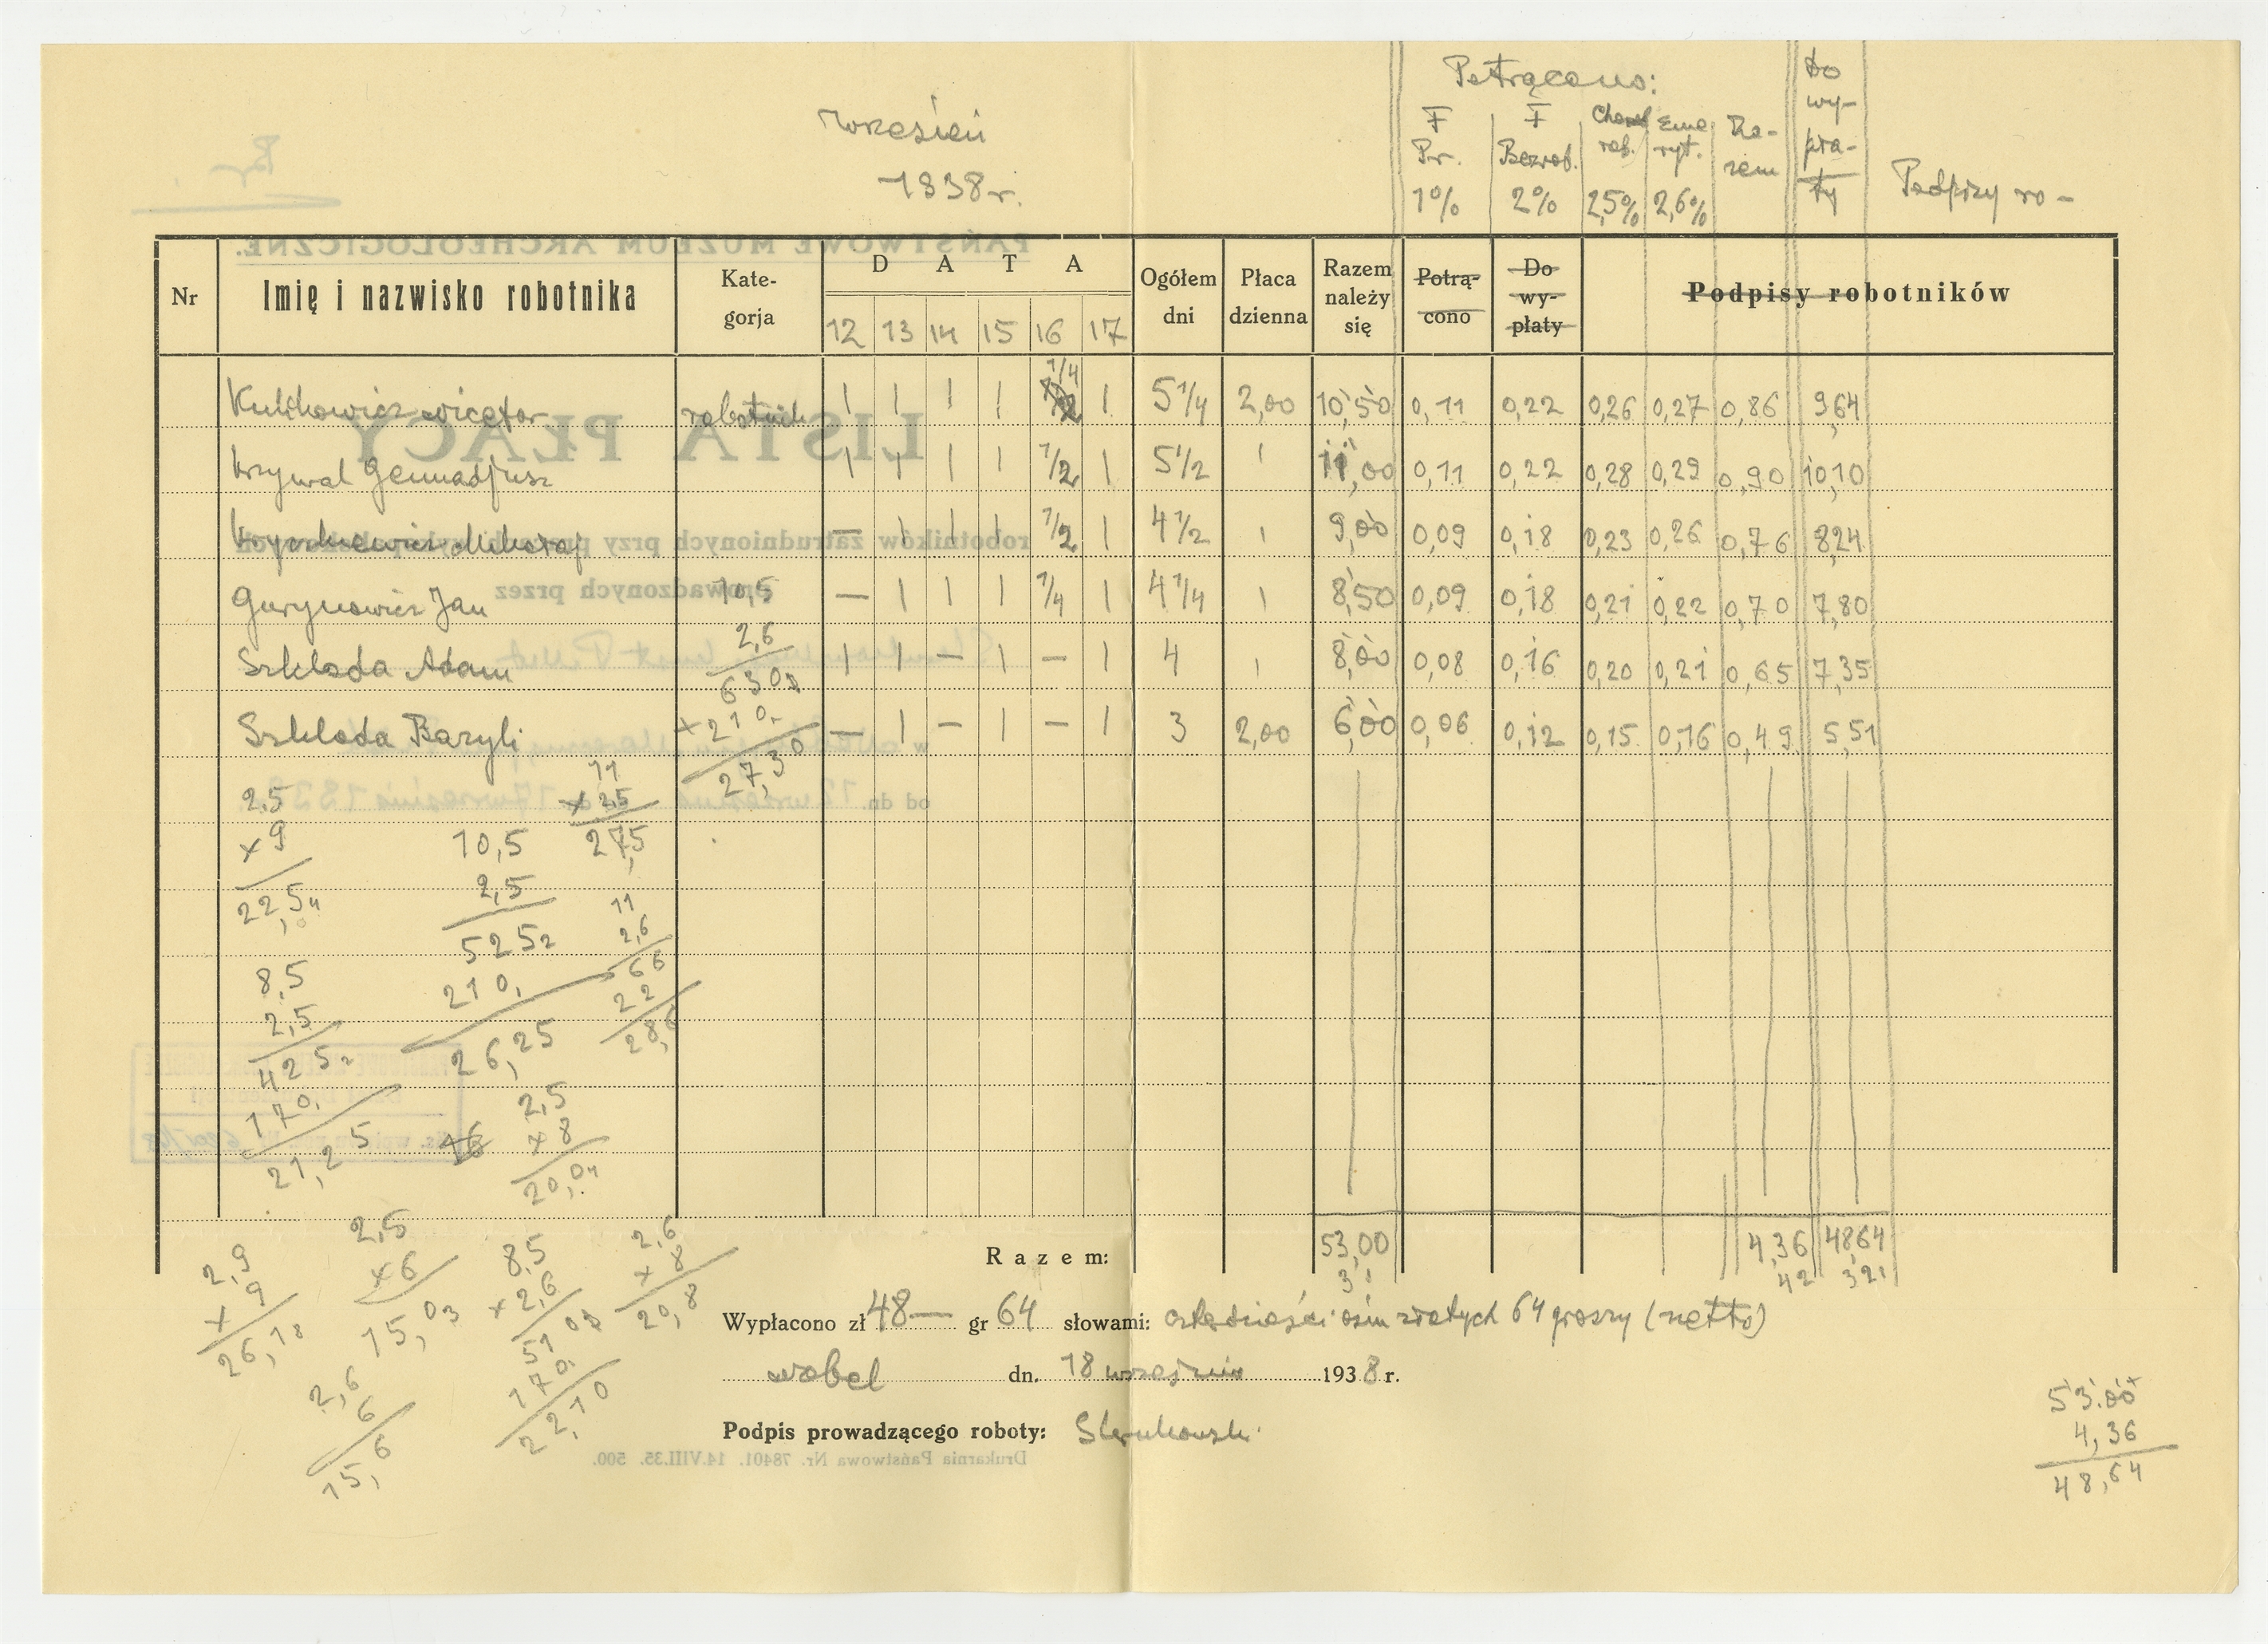 Wrzesień
1938 r.
Potrącono:
F Pr. 1%
F Bezrob. 2%
rob. 2,5%
Eme ryt. 2,6%
Ra- zem
Do wy- pła- ty
Podpisy ro-
Nr
Imię i nazwisko robotnika
Kate- gorja
D A T A
12 13 14 15 16 17
Ogółem dni
Płaca dzienna
Razem należy się
Potrą- cono
Do wy- płaty
Podpisy robotników
Kulikowicz Wictor robotnik 1 1 1 1 1/4 1 5 1/4 2,00 10,50 0,11 0,22 0,26 0,27 0,86 9,64
Krzywal Gennadjusz 1 1 1 1 1/2 1 5 1/2 ı 11,00 0,11 0,22 0,28 0,29 0,90 10,10
Mikołaj — 1 1 1 1/2 1 4 1/2 ı 9,00 0,09 0,18 0,23 0,26 0,76 8,24
Gurynowicz Jan — 1 1 1 1/4 1 4 1/4 ı 8,50 0,09 0,18 0,21 0,22 0,70 7,80
Szkloda Adam 1 1 — 1 — 1 4 ı 8,00 0,08 0,16 0,20 0,21 0,65 7,35
Szkloda Bazyli — 1 — 1 — 1 3 2,00 6,00 0,06 0,12 0,15 0,16 0,49 5,51
10,5
2,6
630
+210
27,30
2,5
× 9
22,5
11
× 2,5
27,5
10,5
2,5
525
210
26,25
11
2,6
66
22
28,6
8,5
2,5
425
170
21,25
2,5
× 8
20,0
2,9
× 9
26,1
2,5
× 6
15,0
8,5
× 2,6
510
170
22,10
2,6
× 8
20,8
2,6
6
15,6
Razem: 53,00 4,36 48,64
3 42 321
Wypłacono zł 48— gr 64 słowami: czterdzieści osim złotych 64 groszy (netto)
Wobel dn. 18 września 1938 r.
Podpis prowadzącego roboty:
53.00
4,36
48,64
PAŃSTWOWE MUZEUM ARCHEOLOGICZNE.
LISTA PŁACY
robotników zatrudnionych przy
prowadzonych przez
w
od dn. 12 września 17 września 193
Drukarnia Państwowa Nr. 78401. 14.VIII.35. 500.